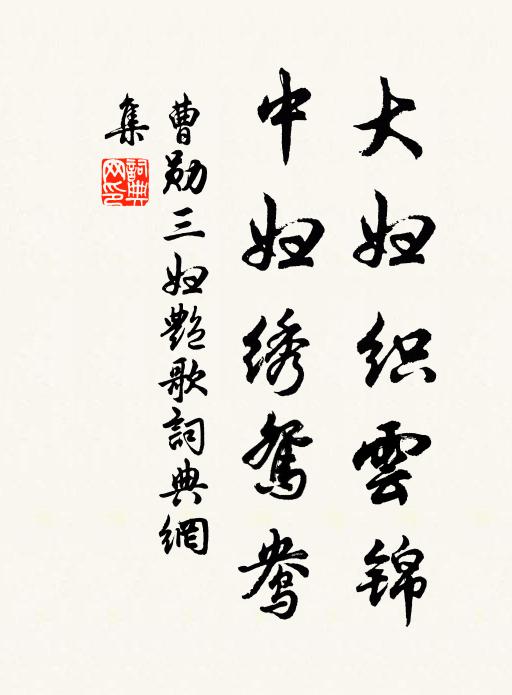 大妇织雲锦
中妇绣鸳鸯
曹勋三妇艷歌詞典網
集
詞典网印